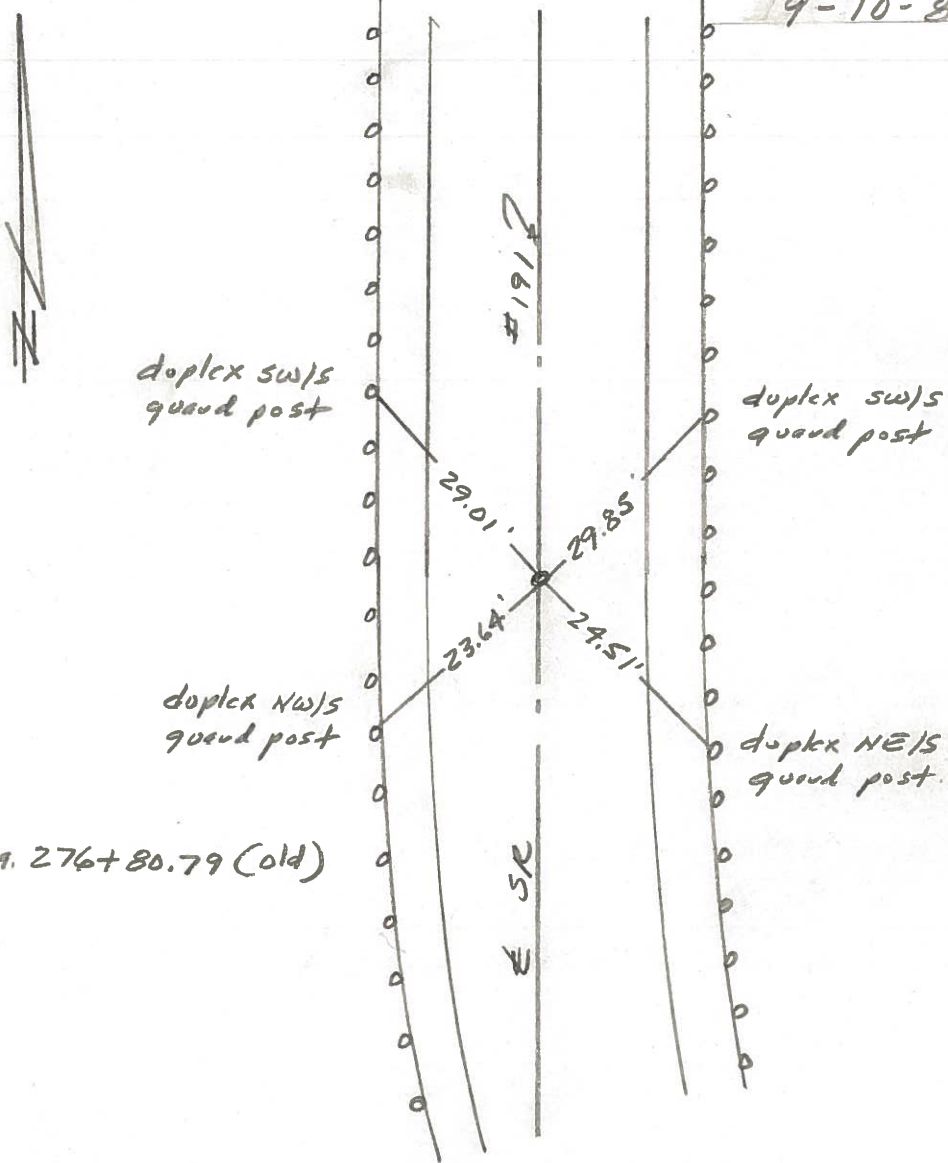 9-10-8
N
#191
duplex SW/S
guard post
duplex SW/S
guard post
29.01'
29.85'
23.64'
24.51'
duplex NW/S
guard post
duplex NE/S
guard post
276+80.79 (old)
℄ SR